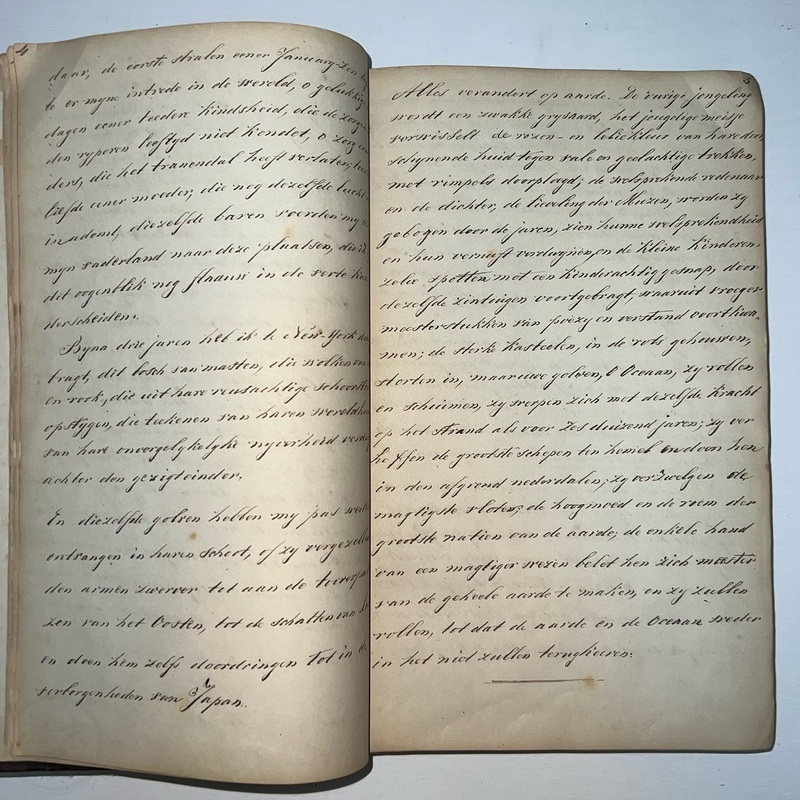 4
daar, de eerste stralen eener January-zon
te er myne intrede in de wereld, o gelukkig
dagen eener teedere kindsheid, die de zorgen
den ryperen leeftyd niet kendet, O zorg
ders, die het tranendal heeft verlaten;
liefde eener moeder; die nog dezelfde lucht
in ademt; diezelfde baren voerden my
myn vaderland naar deze plaatsen, die
dit oogenblik nog flaauw in de verte
derscheiden.
Byna drie jaren heb ik te New-York
bragt, dit bosch van masten, die wolken
en rook, die uit hare reusachtige schoorst
opstygen, die teekenen van haren wereld
van hare onvergelykelyke nyverheid verd
achter den gezigteinder.
En diezelfde golven hebben my pas
ontvangen in haren schoot, of zy vergezell
den armen zwerver tot aan de
zen van het Oosten, tot de schatten van
en doen hem zelfs doordringen tot in
verborgenheden van Japan.
5
Alles verandert op aarde. De vurige jongeling
wordt een zwakke grysaard, het jeugdige meisje
verwisselt de rozen- en leliekleur van hare
schynende huid tegen vale en geelachtige trekken,
met rimpels doorploegd; de welsprekende redenaar
en de dichter, de lieveling der Muzen, worden zy
gebogen door de jaren, zien hunne welsprekendheid
en hun vernuft verdwynen, en de kleine kinderen
zelve spotten met een kinderachtig gesnap, door
dezelfde zintuigen voortgebragt, waaruit vroeger
meesterstukken van poëzy en verstand voortkwa-
men; de sterke kasteelen, in de rots gehouwen,
storten in, maar uwe golven, O Oceaan, zy rollen
en schuimen, zy werpen zich met dezelfde kracht
op het strand als voor zes duizend jaren; zy ver
heffen de grootste schepen ten hemel en doen hen
in den afgrond nederdalen; zy verzwelgen de
magtigste vloten; de hoogmoed en de roem der
grootste natien van de aarde; de enkele hand
van een magtiger wezen belet hen zich meester
van de geheele aarde te maken, en zy zullen
rollen, tot dat de aarde en de Oceaan weder
in het niet zullen terugkeeren.